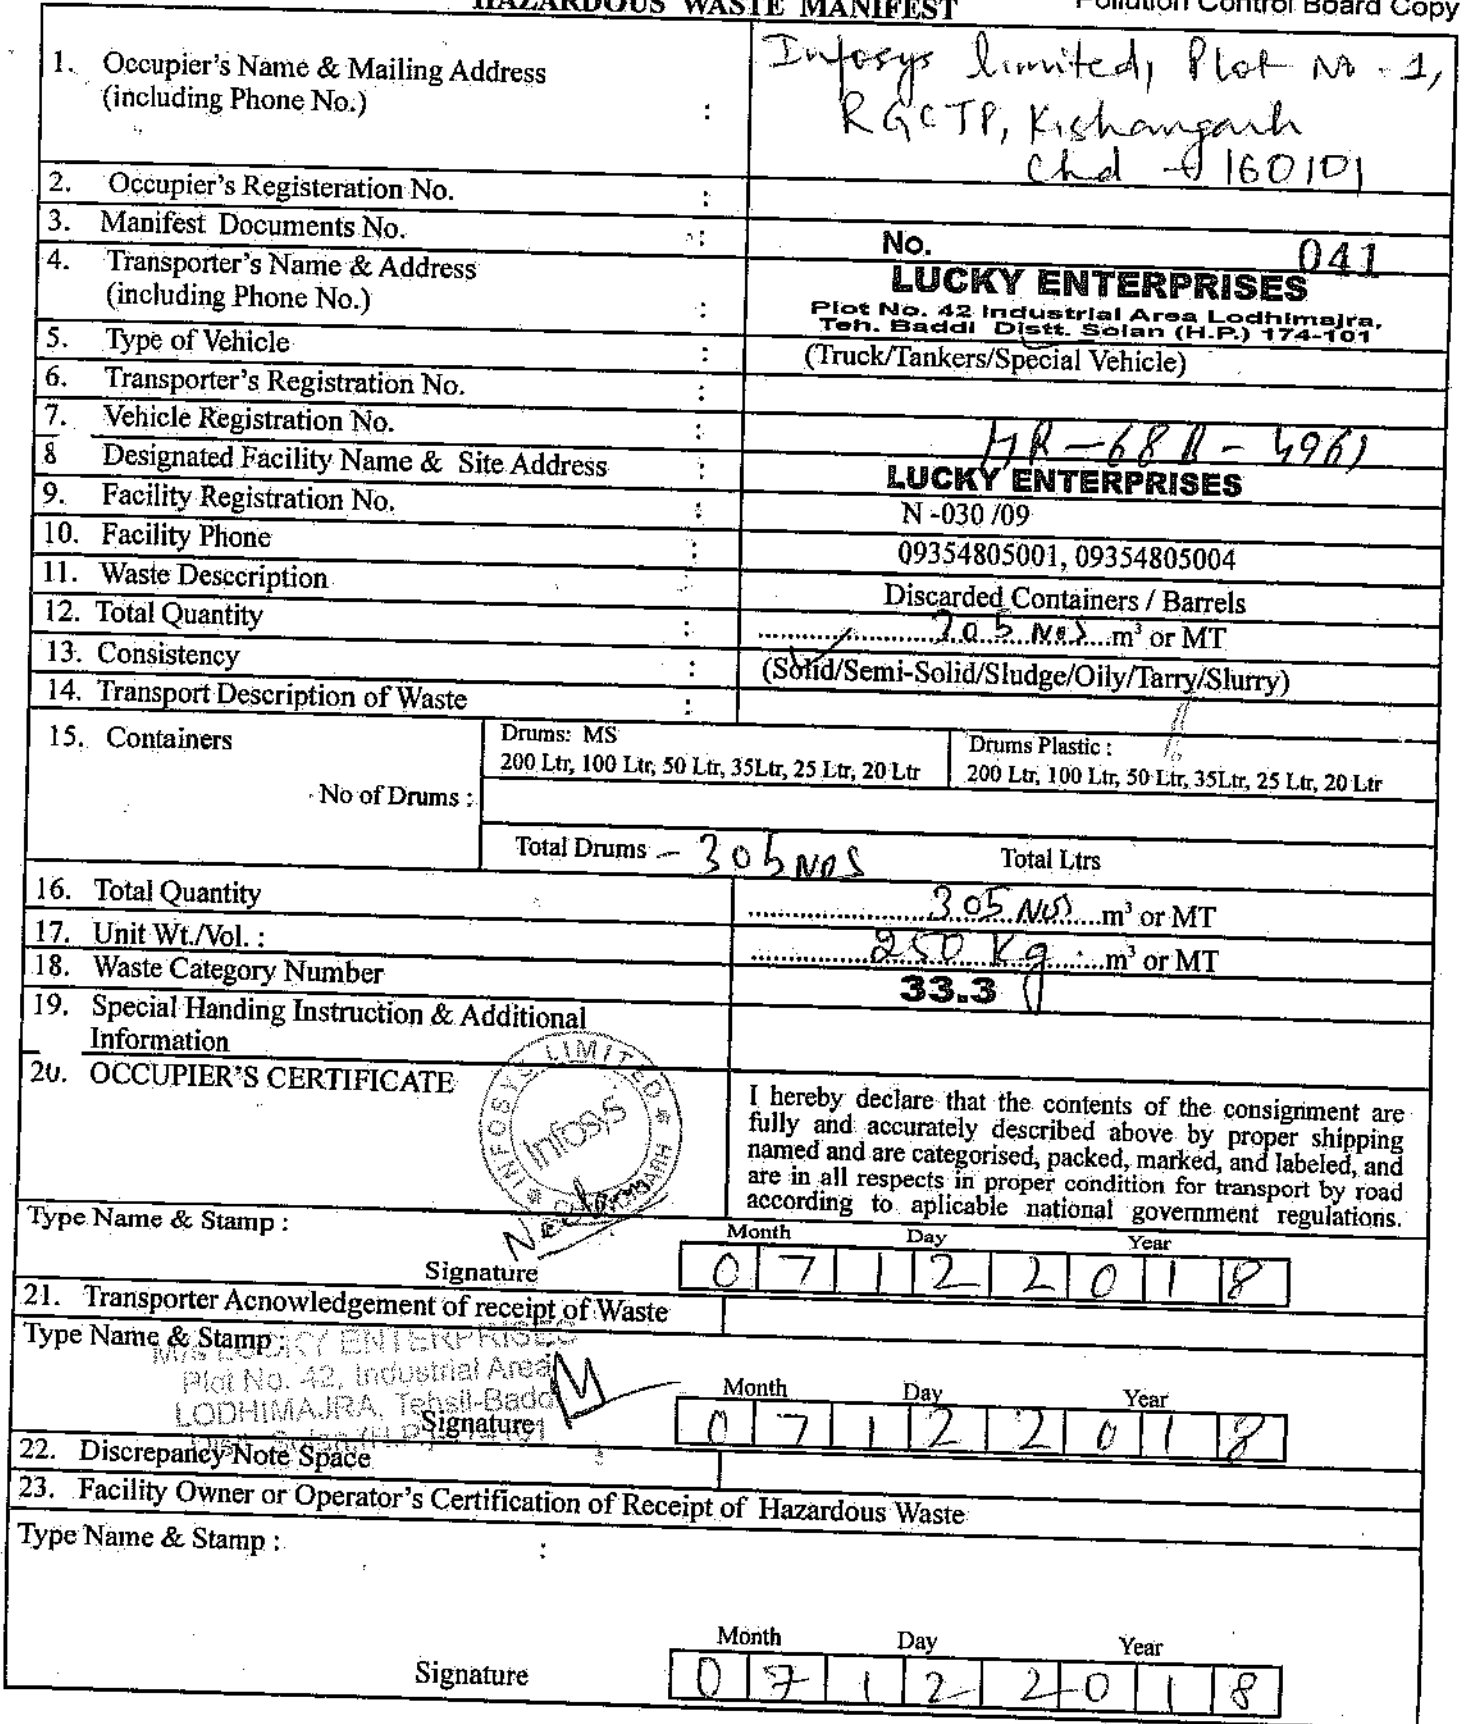 HAZARDOUS WASTE MANIFEST
Pollution Control Board Copy
1. Occupier's Name & Mailing Address
(including Phone No.) :
Infosys limited, Plot No - 1,
RGCTP, Kishangarh
Chd - 160101
2. Occupier's Registeration No. :
3. Manifest Documents No. :
No. 041
4. Transporter's Name & Address
(including Phone No.) :
LUCKY ENTERPRISES
Plot No. 42 Industrial Area Lodhimajra,
Teh. Baddi Distt. Solan (H.P.) 174-101
5. Type of Vehicle : (Truck/Tankers/Special Vehicle)
6. Transporter's Registration No. :
7. Vehicle Registration No. : HR-68 -4961
8 Designated Facility Name & Site Address : LUCKY ENTERPRISES
9. Facility Registration No. : N -030 /09
10. Facility Phone : 09354805001, 09354805004
11. Waste Desccription : Discarded Containers / Barrels
12. Total Quantity : 305 Nos m³ or MT
13. Consistency : (Solid/Semi-Solid/Sludge/Oily/Tarry/Slurry)
14. Transport Description of Waste :
15. Containers
Drums: MS
200 Ltr, 100 Ltr, 50 Ltr, 35Ltr, 25 Ltr, 20 Ltr
Drums Plastic :
200 Ltr, 100 Ltr, 50 Ltr, 35Ltr, 25 Ltr, 20 Ltr
No of Drums :
Total Drums - 305 Nos Total Ltrs
16. Total Quantity 305 Nos m³ or MT
17. Unit Wt./Vol. : 250 Kg m³ or MT
18. Waste Category Number 33.3
19. Special Handing Instruction & Additional
Information
20. OCCUPIER'S CERTIFICATE
INFOSYS LIMITED
Infosys
I hereby declare that the contents of the consignment are
fully and accurately described above by proper shipping
named and are categorised, packed, marked, and labeled, and
are in all respects in proper condition for transport by road
according to aplicable national government regulations.
Type Name & Stamp :
Signature
Month Day Year
0 7 1 2 2 0 1 8
21. Transporter Acnowledgement of receipt of Waste
Type Name & Stamp :
M/s LUCKY ENTERPRISES
Plot No. 42, Industrial Area
LODHIMAJRA, Tehsil-Badd
Signature
Month Day Year
0 7 1 2 2 0 1 8
22. Discrepancy Note Space :
23. Facility Owner or Operator's Certification of Receipt of Hazardous Waste
Type Name & Stamp : :
Signature
Month Day Year
0 7 1 2 2 0 1 8